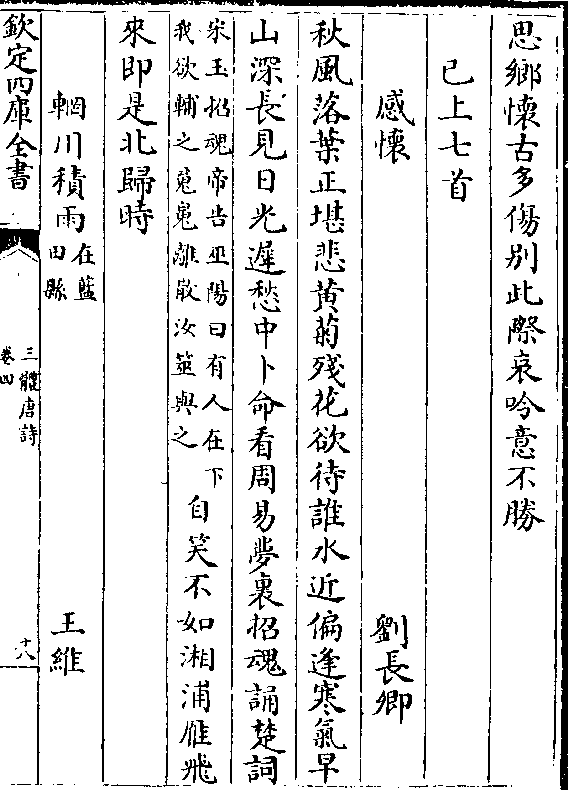 思鄉懷古多傷別此際哀吟意不勝
已上七首
感懷 劉長卿
秋風落葉正堪悲黄菊殘花欲待誰水近偏逢寒氣早
山深長見日光遲愁中卜命看周易夢裏招魂誦楚詞
宋玉招魂帝告巫陽曰有人在下
我欲輔之䰟䰟離散汝筮與之
自笑不如湘浦雁飛
來即是北歸時
輞川積雨 在藍田縣 王維
欽定四庫全書
三體唐詩
卷四
十八